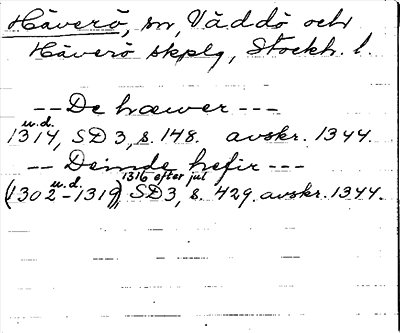 Häverö, sn, Väddö och
Häverö skplg, Stockh. l.
-- De hæwer ---
u.d.
1314, SD 3, s. 148. avskr. 1344.
-- Deinde hefir ---
u.d. 1316 efter jul
(1302 - 1319), SD3, s. 429. avskr. 1344.